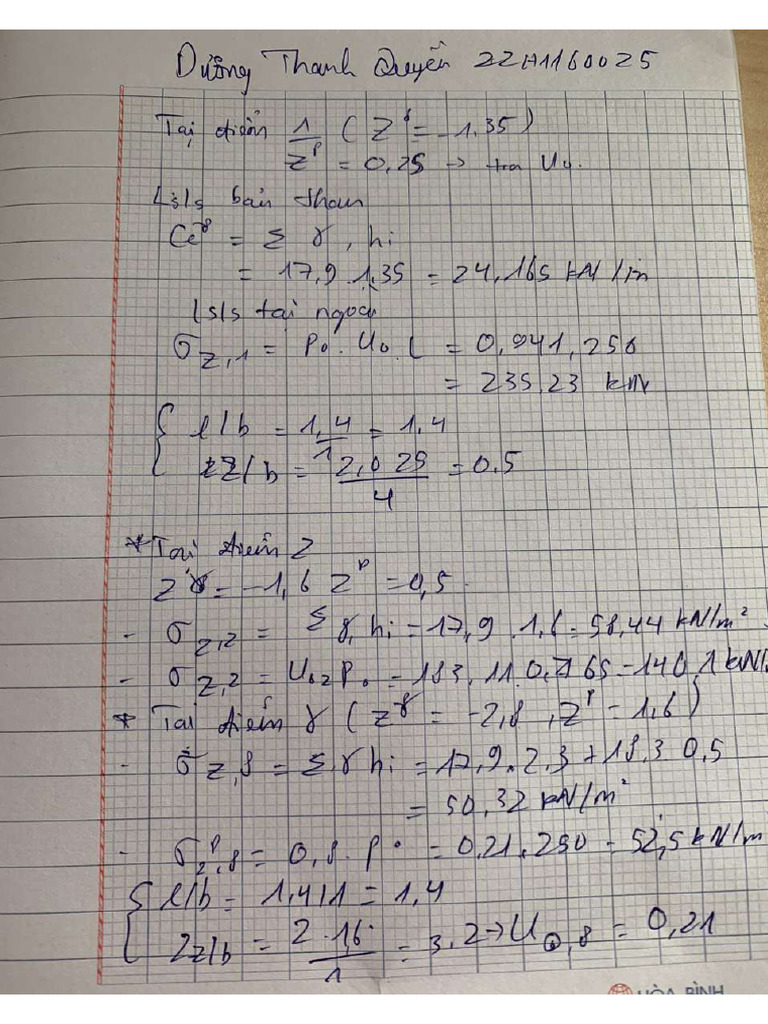 Dương Thanh Quyền 22H1160025
Tại điểm 1 (Z^γ = -1,35)
Z^p = 0,25 → tra U₀.
Ưs bản thân
= Σ γ, hi
= 17,9 . 1,35 = 24,165 kN/m
Ưs tải ngoài
σ_z,1 = P₀ . U₀ = 0,941,250
= 235,23 kN
{ l/b = 1,4/1 = 1,4
2Z/b = 2,0,25/4 = 0.5
* Tại điểm 2
Z^γ = -1,6 Z^p = 0,5
- σ_z,2 = Σ γ, hi = 17,9 . 1,6 = 58,44 kN/m²
- σ_z,2 = U₀₂ P₀ = 183,11 0,765 = 140,1 kN/
* Tại điểm 8 (Z^γ = -2,8, Z^p = 1,6)
- σ_z,8 = Σ γ hi = 17,9 . 2,3 + 18,3 0,5
= 50,32 kN/m²
- σ^p_z,8 = 0,8 . P = 0,21 . 250 = 52,5 kN/m
{ l/b = 1,4/1 = 1,4
2z/b = 2 . 1,6/1 = 3.2 → U₀,8 = 0,21
HÒA BÌNH